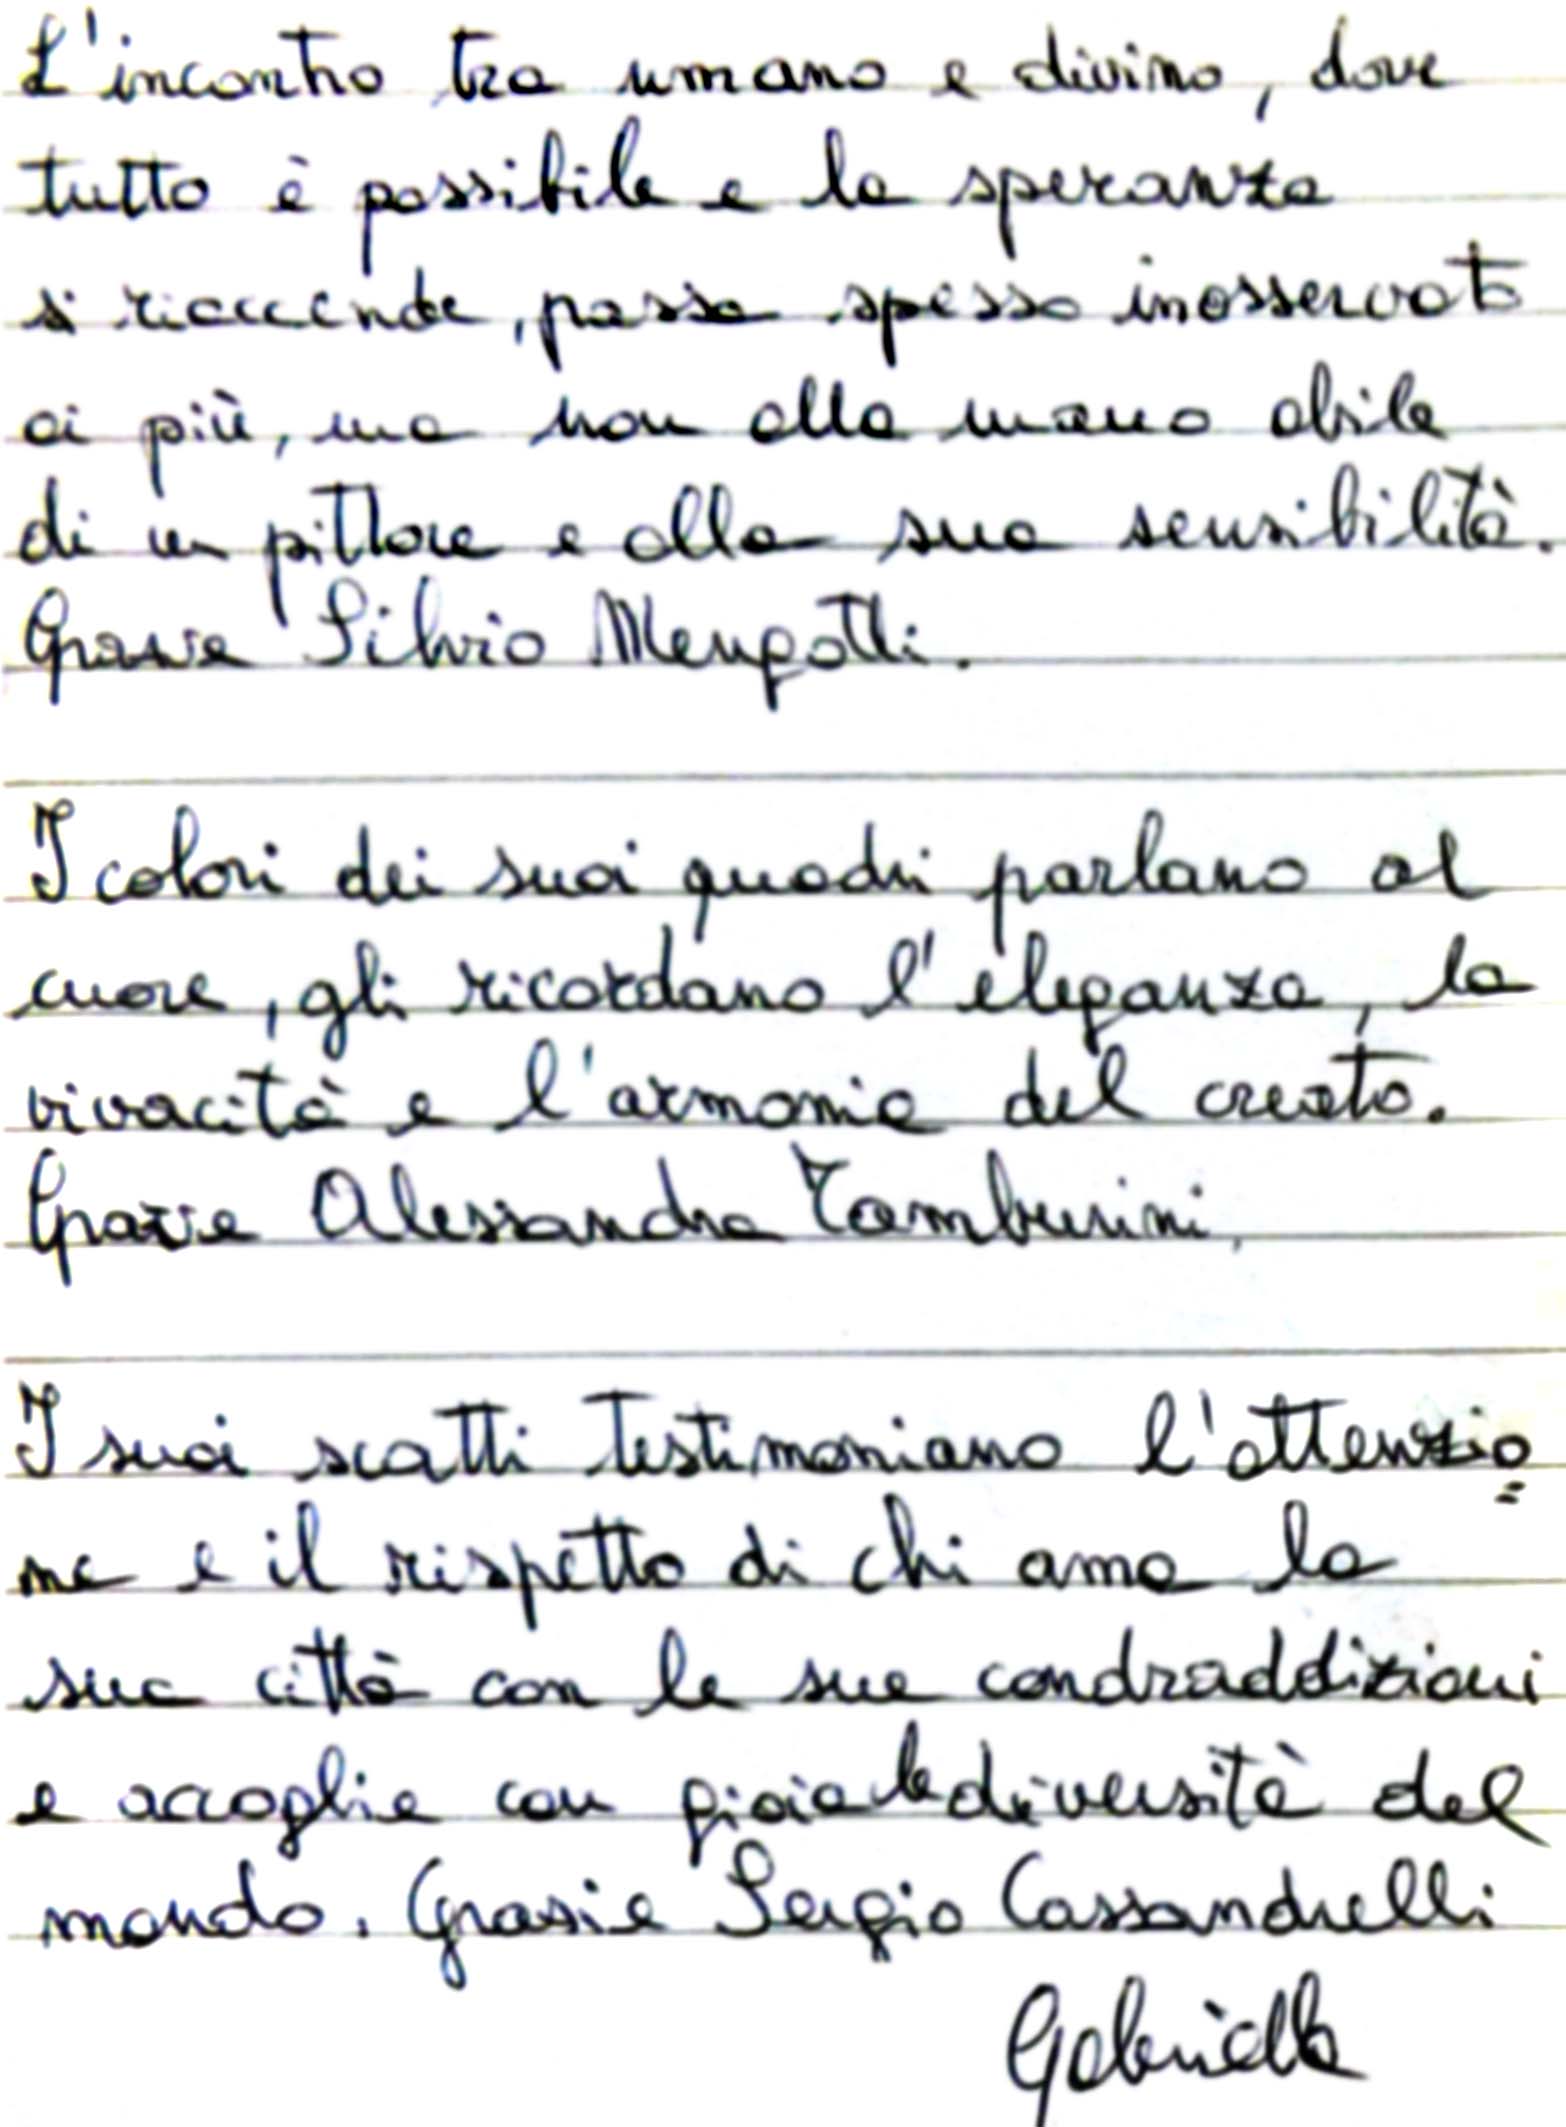 L'incontro tra umano e divino, dove
tutto è possibile e la speranza
si riaccende, passa spesso inosservato
ai più, ma non alla mano abile
di un pittore e alla sua sensibilità.
Grazie Silvio Mengotti.
I colori dei suoi quadri parlano al
cuore, gli ricordano l'eleganza, la
vivacità e l'armonia del creato.
Grazie Alessandra Tamburini.
I suoi scatti testimoniano l'attenzio=
ne e il rispetto di chi ama la
sua città con le sue condraddizioni
e accoglie con gioia le diversità del
mondo. Grazie Sergio Cassandrelli
Gabriella